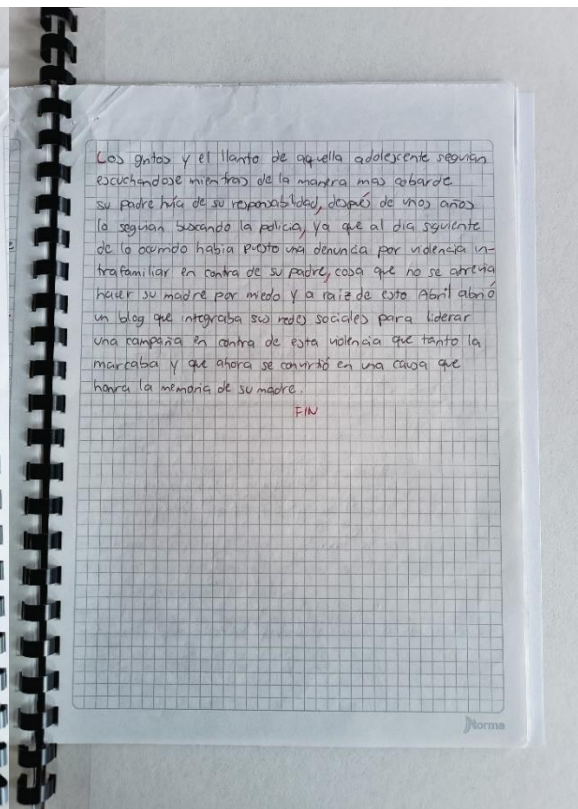 Los gritos y el llanto de aquella adolescente seguian
escuchandose mientras de la manera mas cobarde
su padre huia de su responsabilidad, después de unos años
lo seguian buscando la policia, ya que al dia siguiente
de lo ocurrido habia puesto una denuncia por violencia in-
trafamiliar en contra de su padre, cosa que no se atrevia
hacer su madre por miedo y a raiz de esto Abril abrió
un blog que integraba sus redes sociales para liderar
una campaña en contra de esta violencia que tanto la
marcaba y que ahora se convirtió en una causa que
honra la memoria de su madre.
FIN
Norma